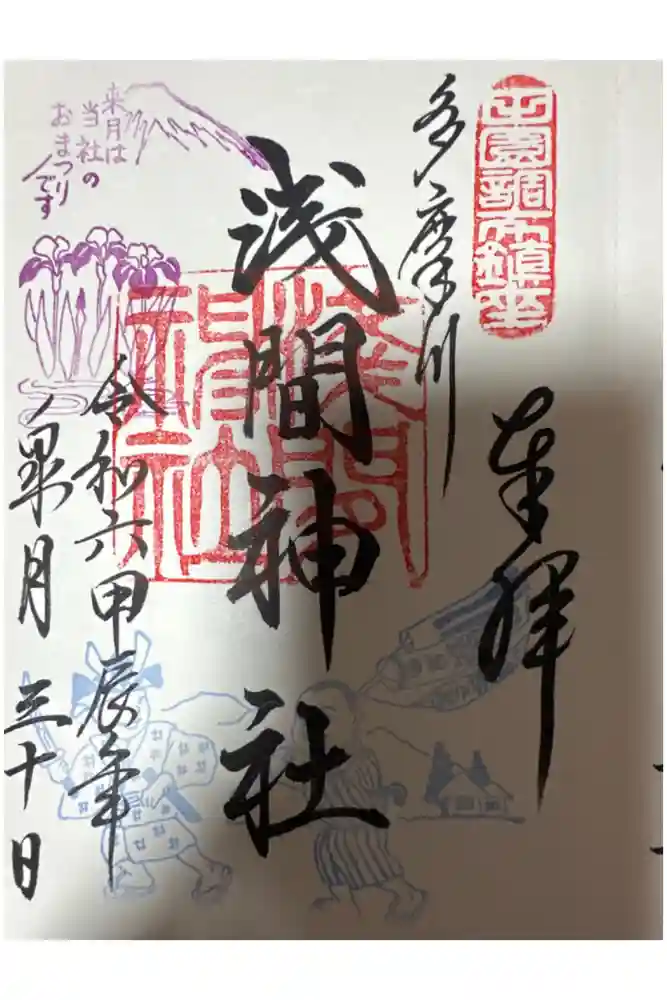 田園調布鎮座
奉拝
多摩川
浅間神社
淺間
神社
令和六甲辰年
皐月三十日
来月は
当社の
おまつり
です